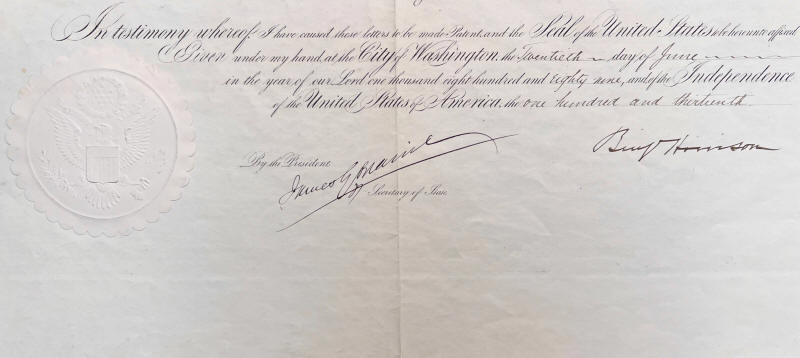 In testimony whereof, I have caused these letters to be made Patent, and the Seal of the United States to be hereunto affixed.
Given under my hand, at the City of Washington, the Twentieth day of June
in the year of our Lord one thousand eight hundred and Eighty nine, and of the Independence
of the United States of America, the one hundred and thirteenth.
Benj Harrison
By the President.
James G Blaine
Secretary of State.